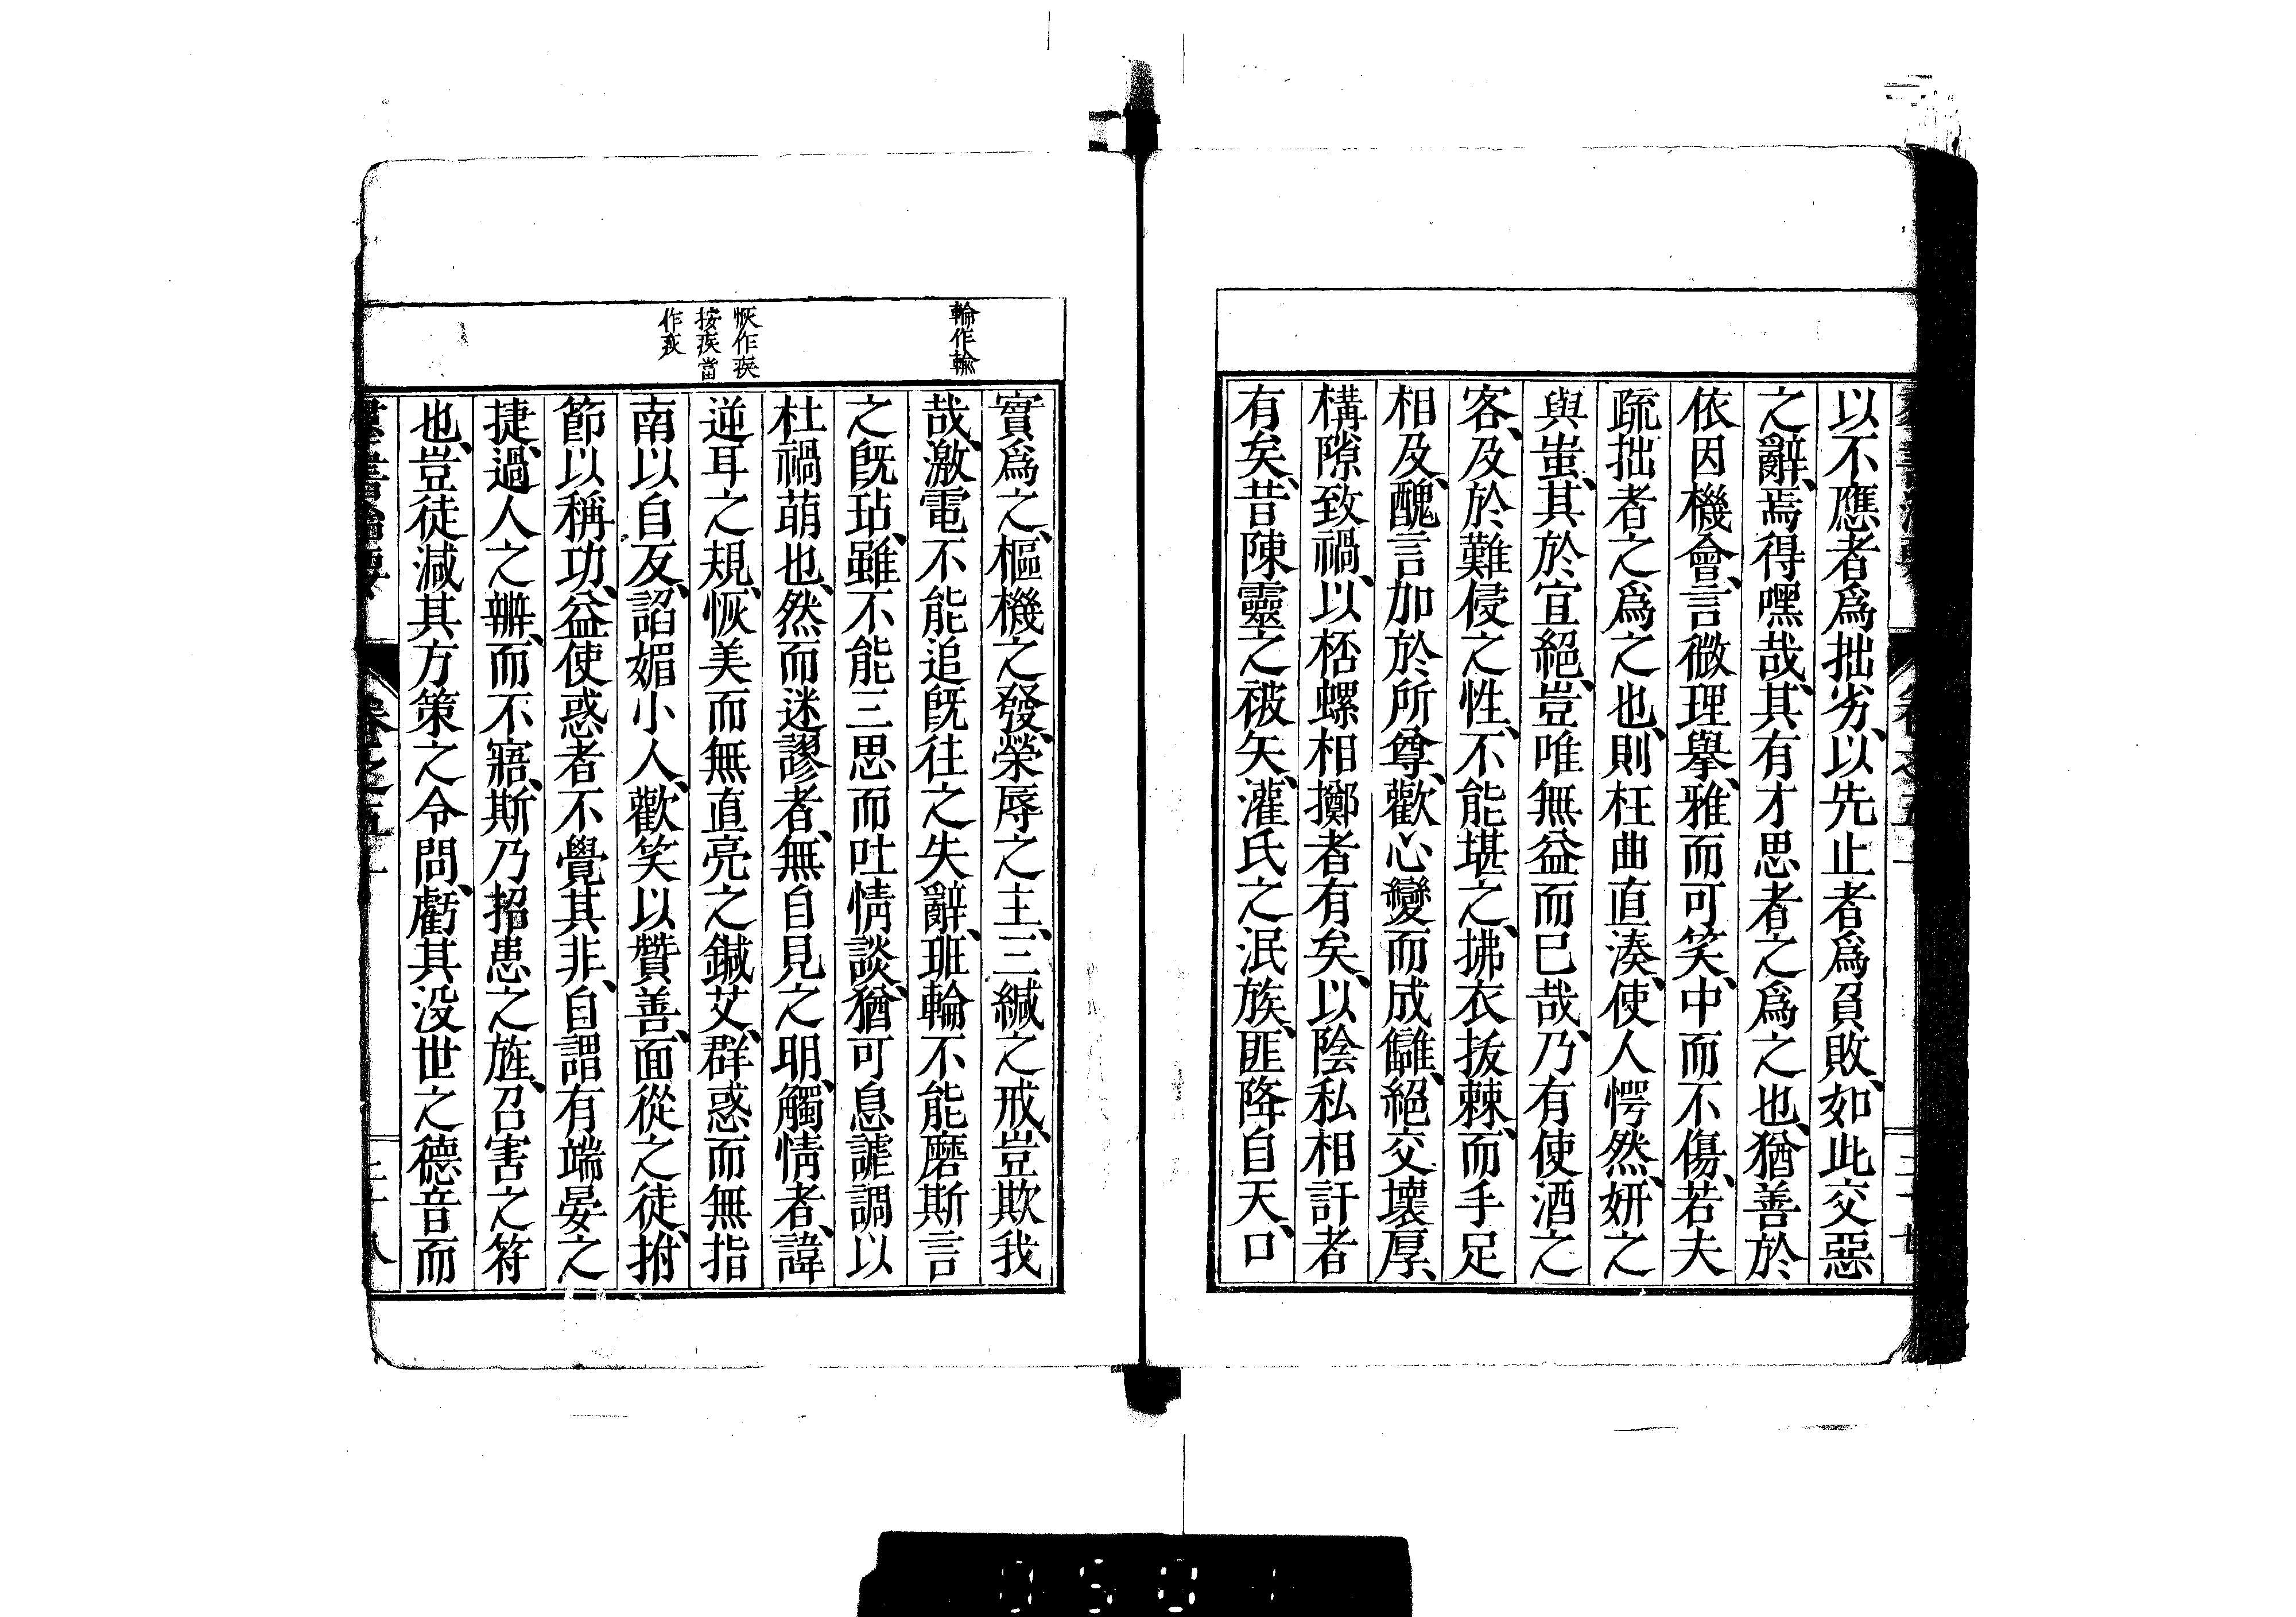 以不應者爲拙劣、以先止者爲負敗、如此交惡
之辭、焉得嘿哉、其有才思者之爲之也、猶善於
依因機會、言微理擧、雅而可笑、中而不傷、若夫
疏拙者之爲之也、則枉曲直湊、使人愕然、妍之
與蚩、其於宜絕、豈唯無益而已哉、乃有使酒之
客、及於難侵之性、不能堪之、拂衣拔棘、而手足
相及、醜言加於所尊、歡心變而成讎、絕交壞厚、
構隙致禍、以栝螺相擲者有矣、以陰私相訐者
有矣、昔陳靈之被矢、灌氏之泯族、匪降自天、口
輪作輸
恢作疾
按疾當
作疢
實爲之、樞機之發、榮辱之主、三緘之戒、豈欺我
哉、激電不能追旣往之失辭、班輪不能磨斯言
之旣玷、雖不能三思而吐情談、猶可息謔調以
杜禍萌也、然而迷謬者、無自見之明、觸情者、諱
逆耳之規、恢美而無直亮之鍼艾、群惑而無指
南以自反、諂媚小人、歡笑以贊善、面從之徒、拊
節以稱功、益使惑者不覺其非、自謂有端晏之
捷、過人之辨、而不寤、斯乃招患之旌、召害之符
也、豈徒減其方策之令問、虧其没世之德音而
群書治要
卷之五十
二十八